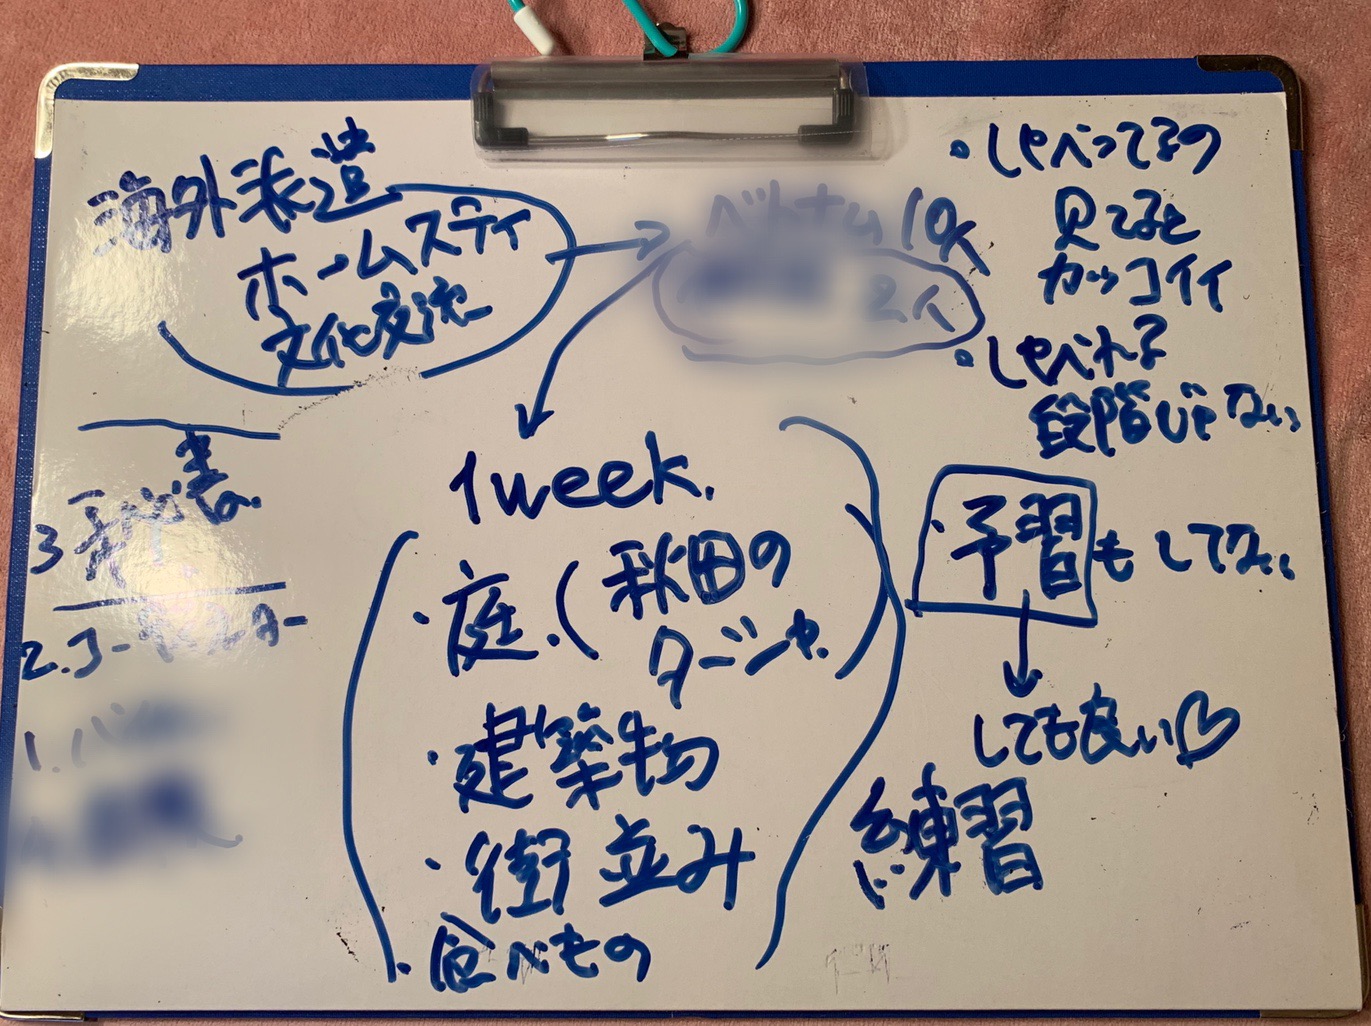 海外派遣
ホームスティ
文化交流
ベトナム 10人
2人
・しゃべってるの
見てると
カッコイイ
・しゃべれる
段階じゃない
1 week.
・庭.(秋田の
ターシャ.)
・建築物
・街並み
・食べもの
・予習もしてない
しても良い♡
練習
3
2.コー
1.